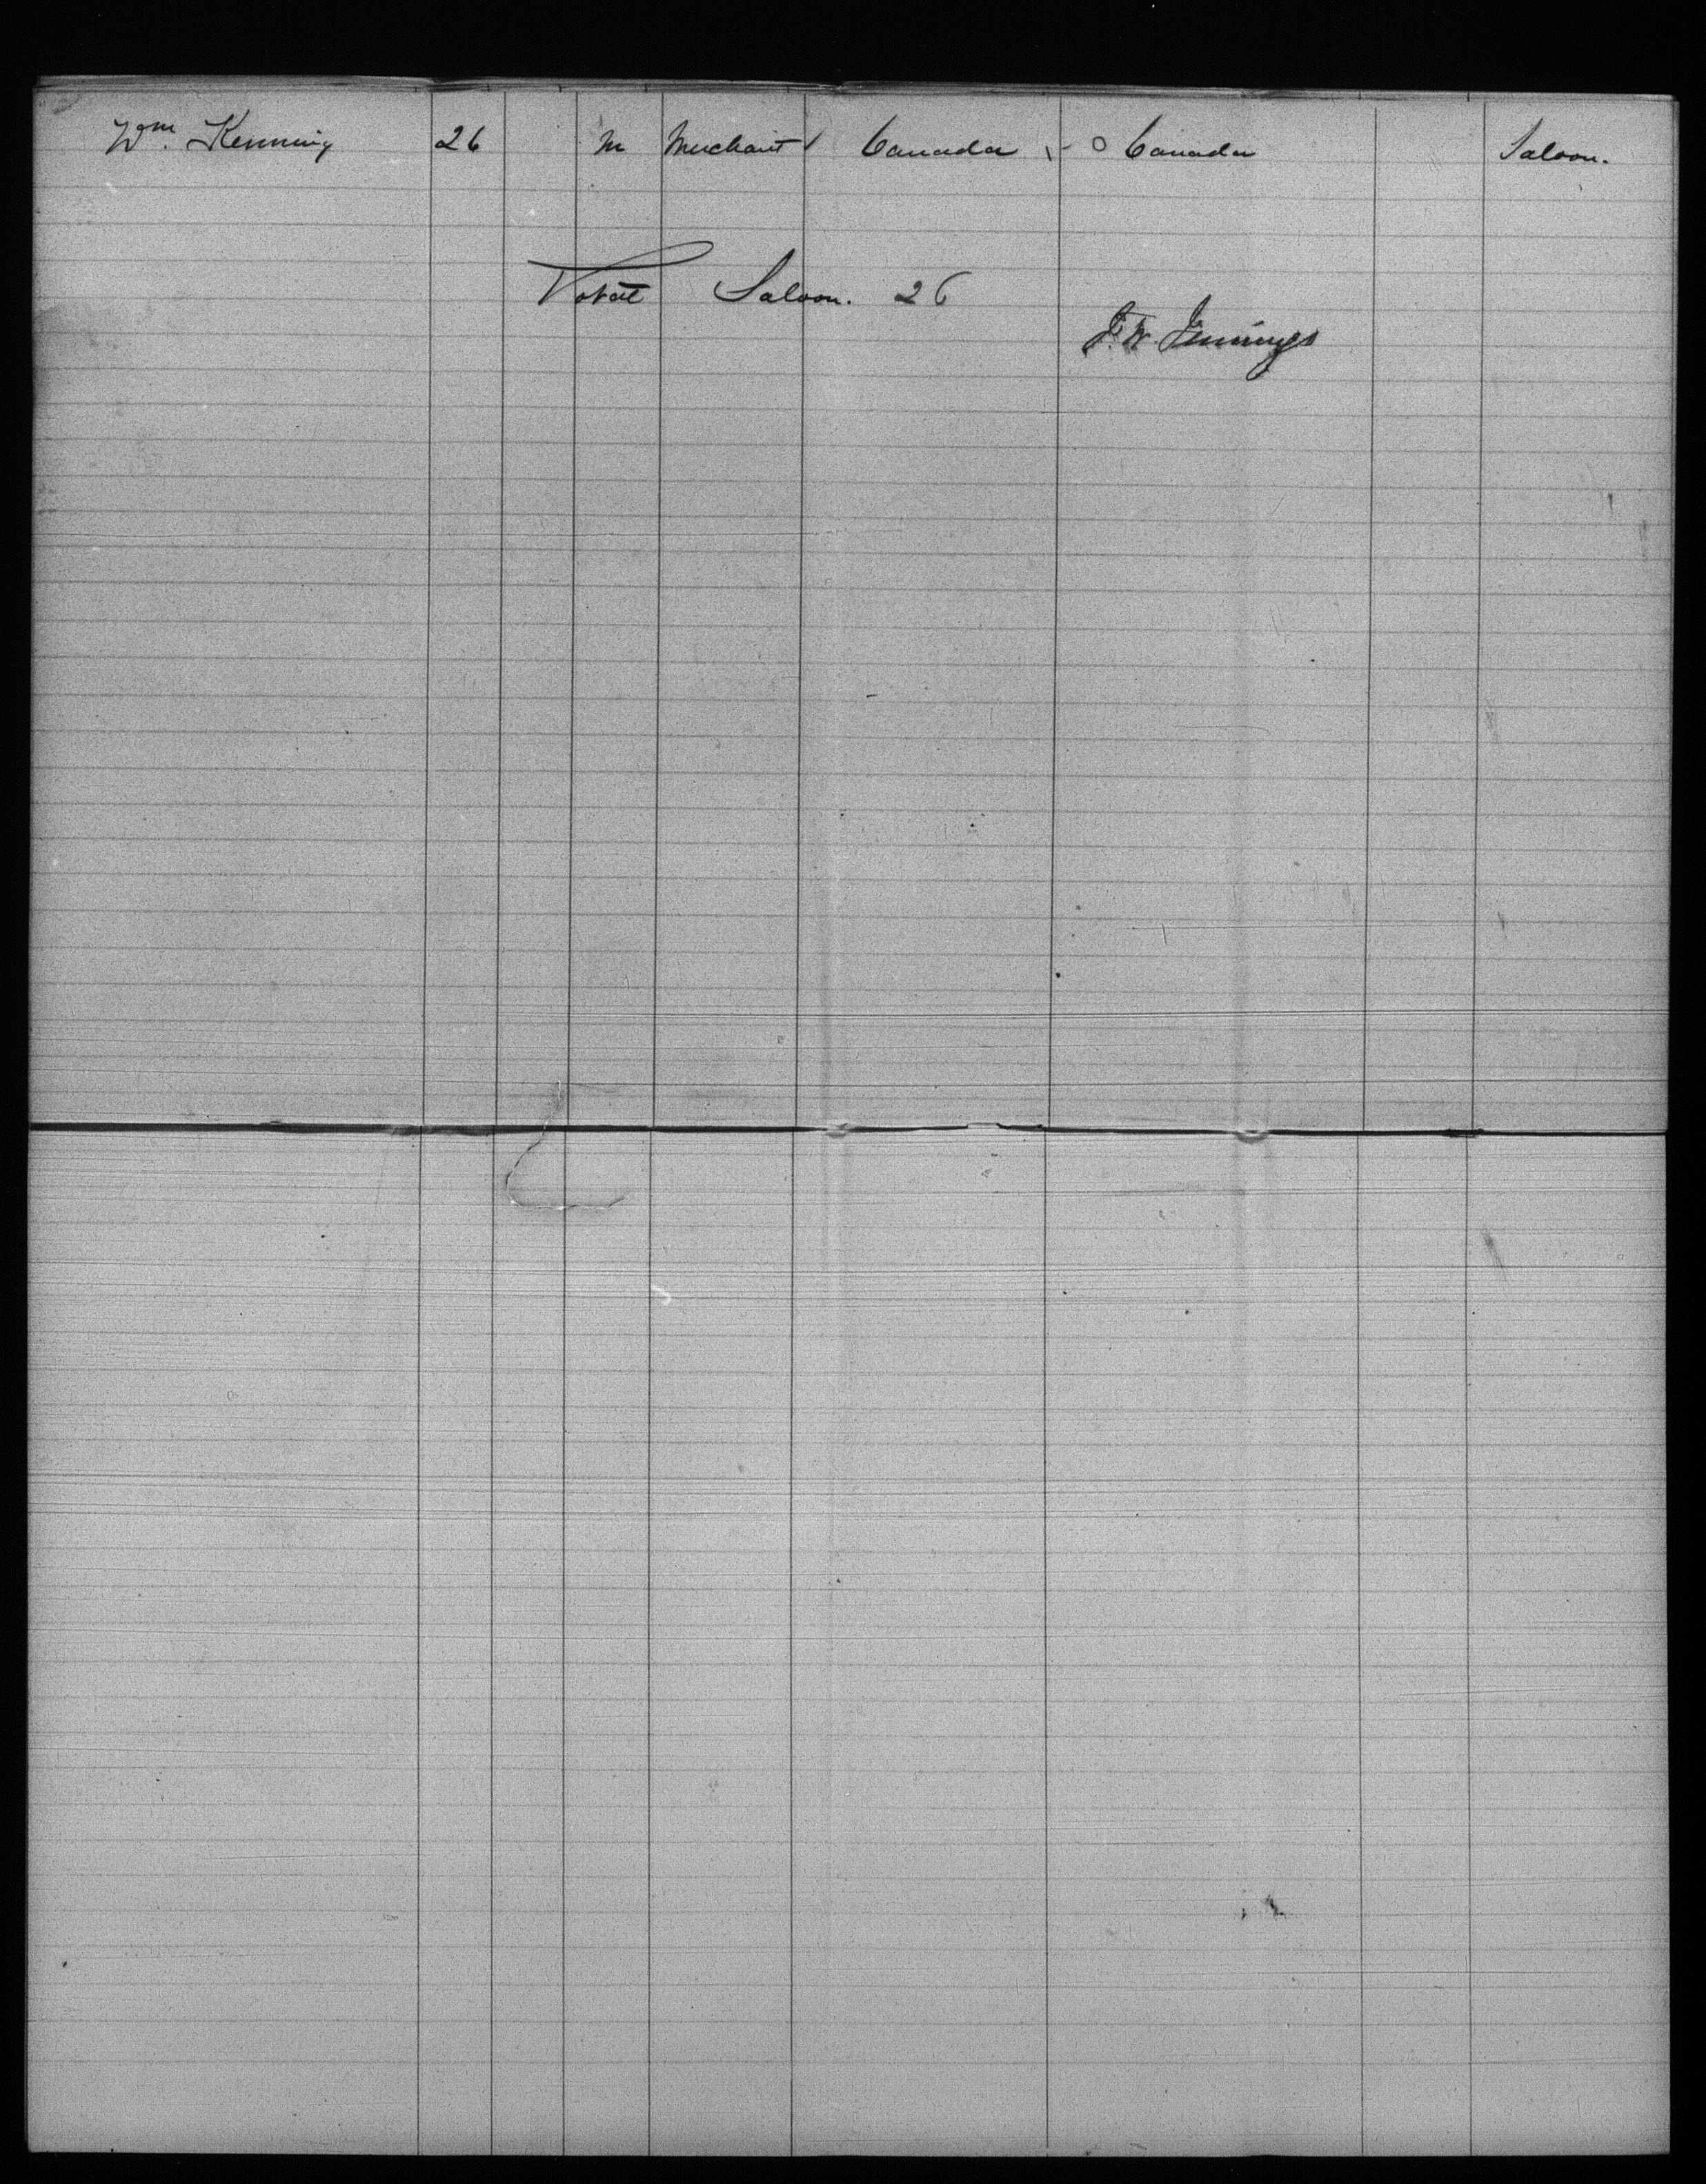 Wm. Kenning 26 m Merchant Canada Canada Saloon.
Total Saloon. 26
J. W. Jennings